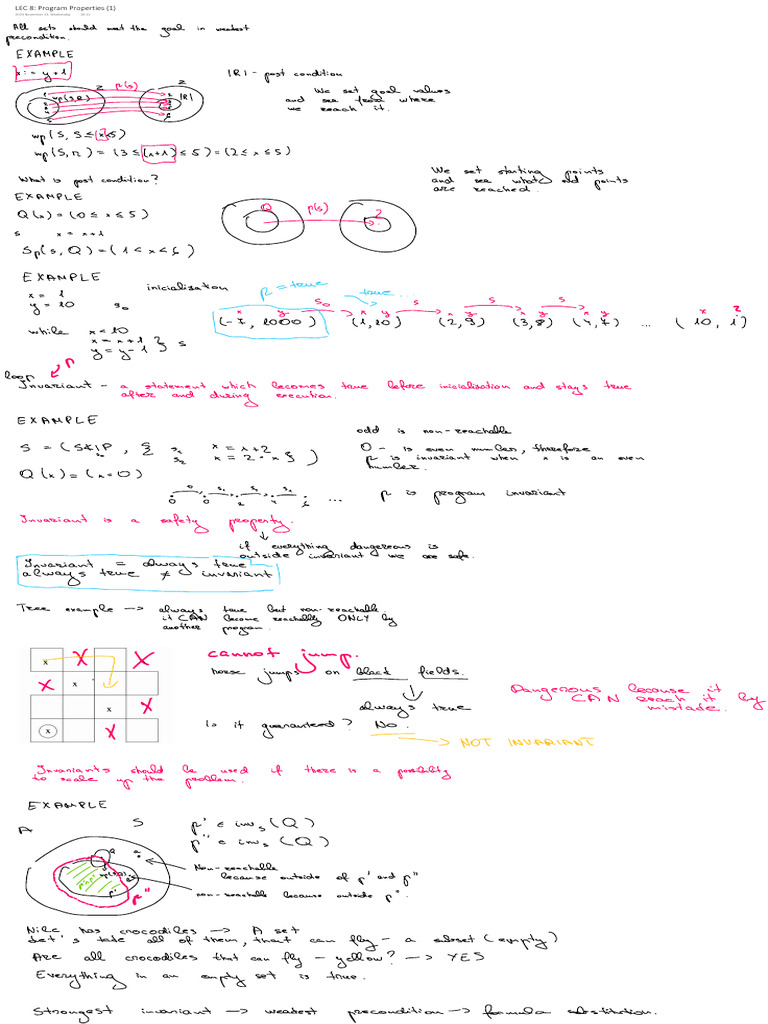 LEC 8: Program Properties (1)
All sets should meet the goal in weakest
precondition.
EXAMPLE
x := y + 1
p(s)
wp(S,R)
|R|
|R| - post condition
We set goal values
and see from where
we reach it.
wp(S, 3 ≤ x ≤ 5)
wp(S, r) = (3 ≤ (x+1) ≤ 5) = (2 ≤ x ≤ 5)
What is post condition?
We set starting points
and see what end points
are reached.
EXAMPLE
Q(s) = (0 ≤ x ≤ 5)
s x = x+1
Sp(s, Q) = (1 < x < 6)
Q p(s) ?
EXAMPLE
x = 1
y = 10 s₀
inicialisation
p = true
true
while x < 10
x = x+1
y = y-1 } s
(-7, 1000) (1, 10) (2, 9) (3, 8) (4, 7) ... (10, i)
loop
Invariant - a statement which becomes true before inicialisation and stays true
after and during execution.
EXAMPLE
odd is non-reachable
S = (SKIP, { s₁ x = x+2
s₂ x = 2·x } )
0 - is even number, therefore
p is invariant when x is an even
number.
Q(x) = (x=0)
... p is program invariant
Invariant is a safety property.
if everything dangerous is
outside invariant we are safe.
Invariant = always true
always true ≠ invariant
Tree example → always true but non-reachable
it CAN become reachable ONLY by
another program.
cannot jump.
horse jumps on black fields.
always true
Is it guaranteed? No.
→ NOT INVARIANT
Dangerous because it
CAN reach it by
mistake.
Invariants should be used if there is a posibility
to scale up the problem.
EXAMPLE
A S
p' ∈ invₛ(Q)
p'' ∈ invₛ(Q)
Non-reachable
because outside of p' and p''
non-reachable because outside p''.
Nile has crocodiles → A set
Let's take all of them, that can fly - a subset (empty)
Are all crocodiles that can fly - yellow? → YES
Everything in an empty set is true.
Strongest invariant → weakest precondition → formula substitution.